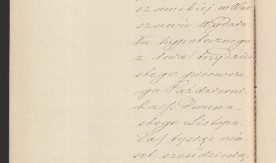 szawskiej w War
szawie Wydzia
łu hypotecznego
z dnia trzydzie
stego pierwsze
go Październi
ka /. Dwuna
stego Listopa
da / tysiąc ośm
set sześćdziesią